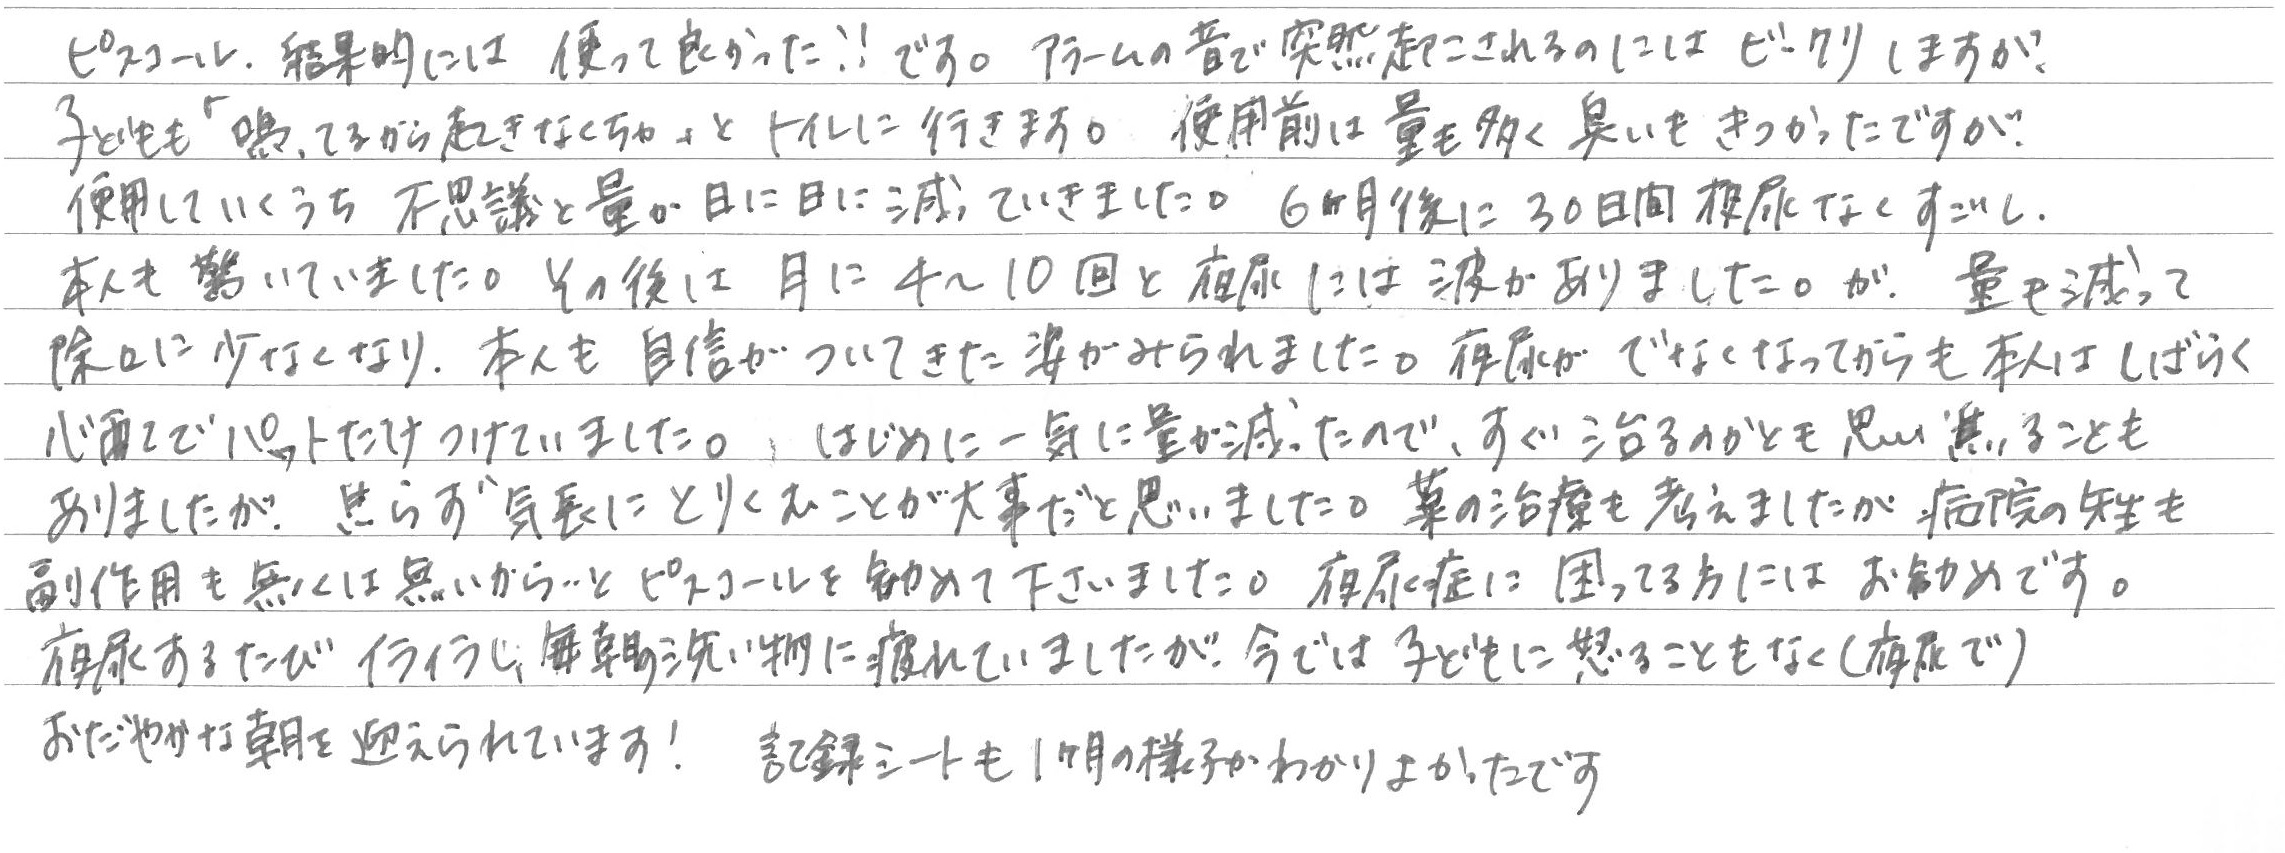 ピスコール、結果的には 使って良かった!! です。 アラームの音で突然起こされるのには ビックリ しますが、
子どもも「鳴ってるから起きなくちゃ」と トイレに 行きます。 使用前は 量も多く 臭いも きつかったですが、
使用していくうち 不思議と量が 日に日に減っていきました。 6ヶ月後に 30日間 夜尿なく すごし、
本人も 驚いていました。 その後は 月に 4〜10回と 夜尿には 波がありました。が、 量も減って
除々に 少なくなり、 本人も 自信が ついてきた 姿がみられました。 夜尿が でなくなってからも 本人は しばらく
心配で パットだけ つけていました。 はじめに 一気に量が減ったので、すぐ 治るのかとも 思い 焦ることも
ありましたが、 焦らず 気長に とりくむことが大事だと思いました。 薬の治療も 考えましたが 病院の先生も
副作用も 無くは無いから…と ピスコールを 勧めて下さいました。 夜尿症に 困ってる方には お勧めです。
夜尿するたび イライラし、毎朝の洗い物に疲れていましたが、今では 子どもに 怒ることもなく(夜尿で)
おだやかな朝を 迎えられています! 記録シートも 1ヶ月の様子がわかりよかったです